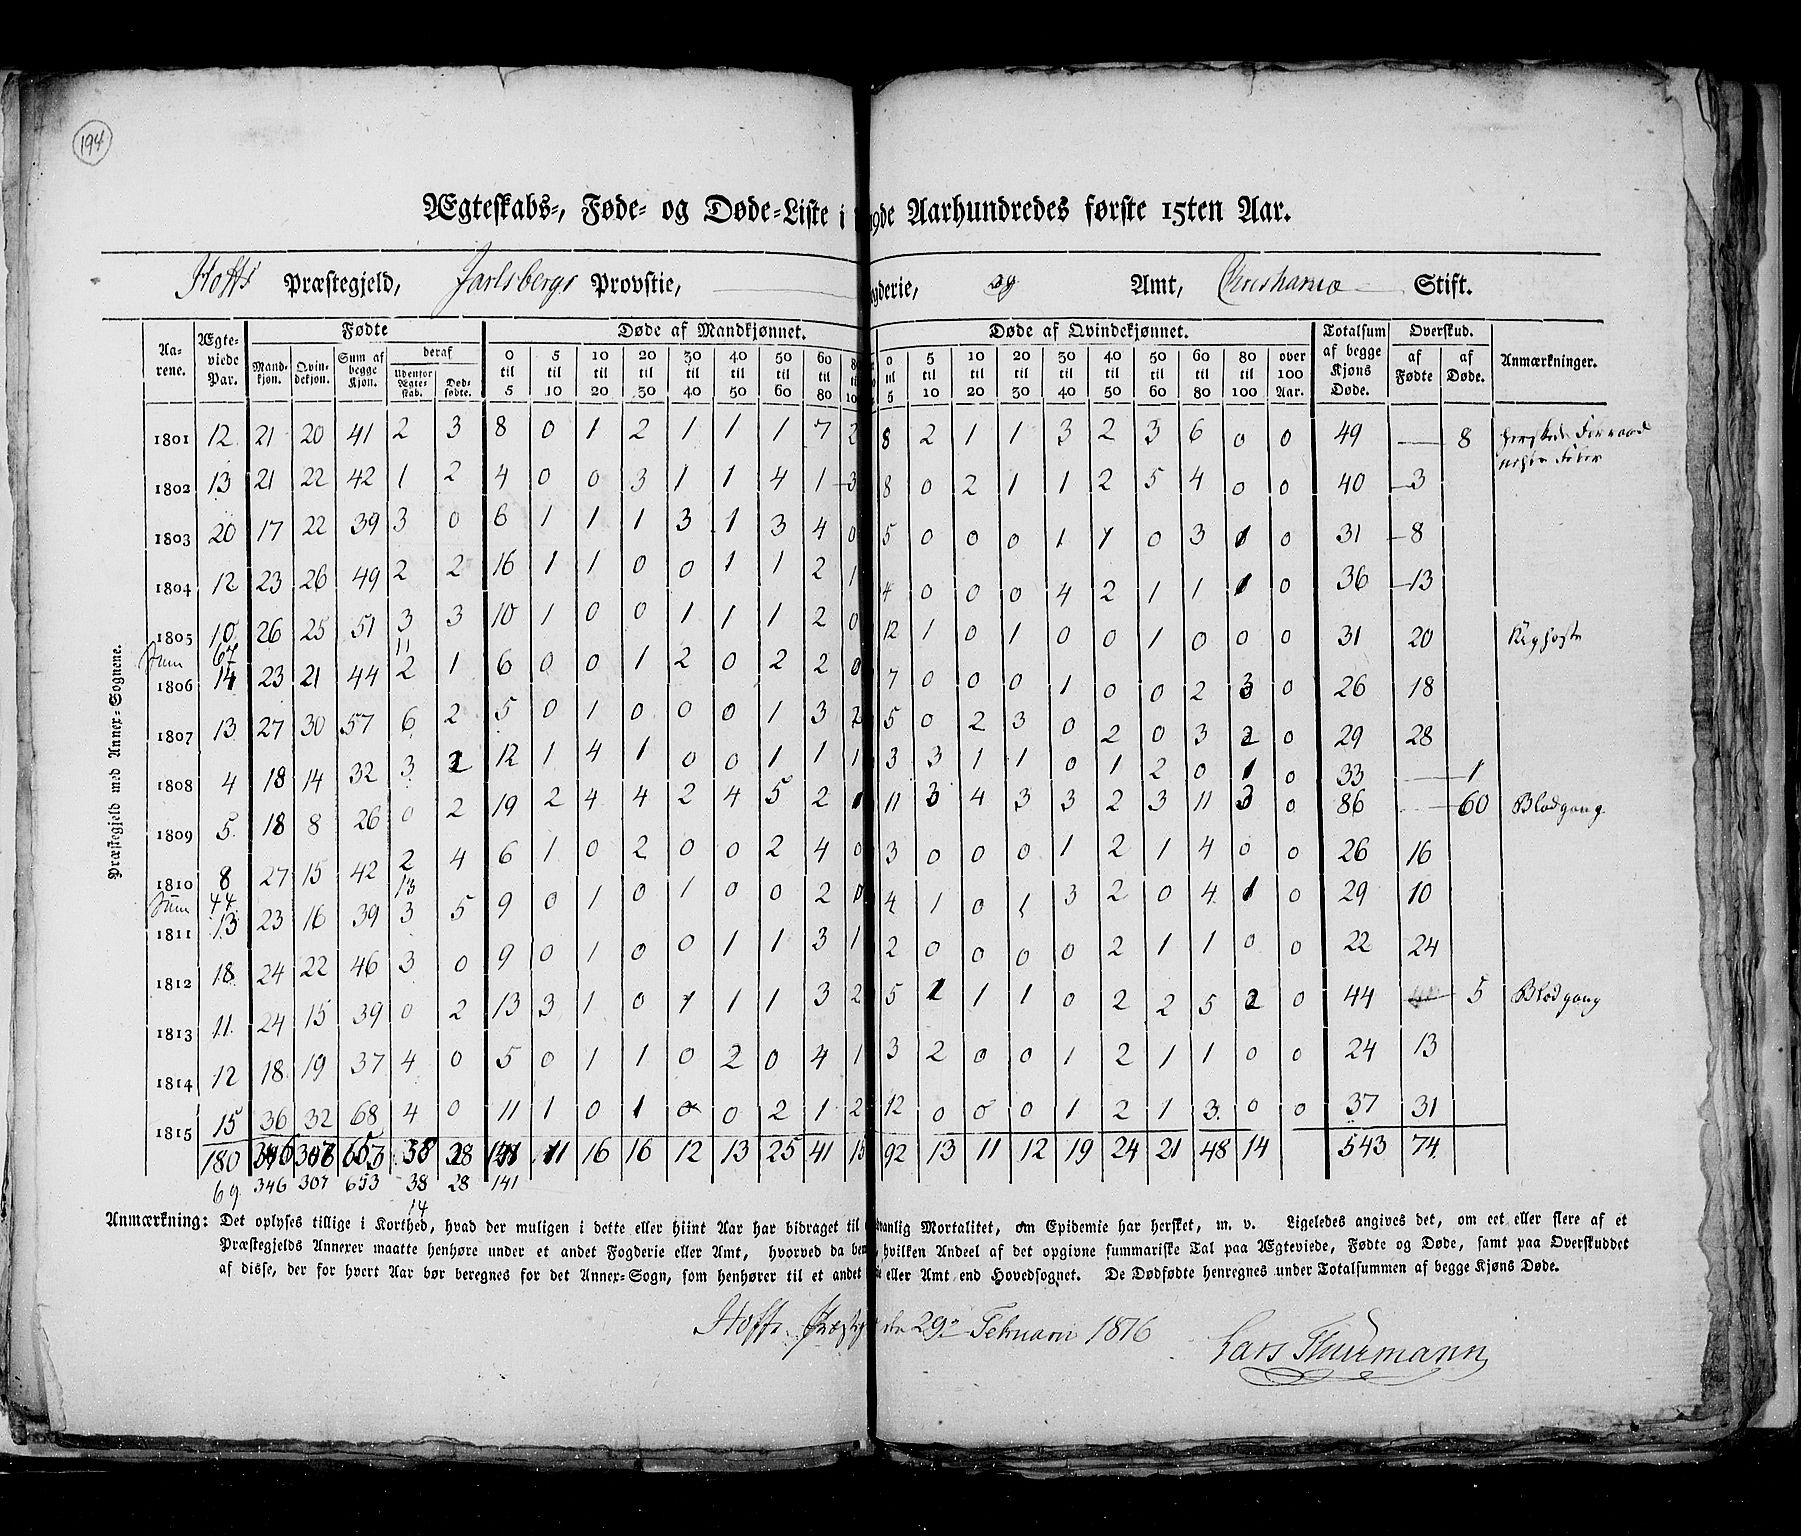 194
Ægteskabs-, Føde- og Døde-Liste i 19de Aarhundredes første 15ten Aar.
Hoffs Præstegjeld, Jarlsbergs Provstie, gderie, og Amt, Christiania Stift.
Aarene. Ægteviede Par. Fødte Døde af Mandkjønnet. Døde af Qvindekjønnet. Totalsum af begge Kjøns Døde. Overskud. Anmærkninger.
Mandkjøn. Qvindekjøn. Sum af begge Kjøn. deraf Udenfor Ægteskab. Dødfødte. 0 til 5 5 til 10 10 til 20 20 til 30 30 til 40 40 til 50 50 til 60 60 til 80 80 0 til 5 5 til 10 10 til 20 20 til 30 30 til 40 40 til 50 50 til 60 60 til 80 80 til 100 over 100 Aar. af Fødte af Døde.
Præstegjeld med Annex-Sognene.
1801 12 21 20 41 2 3 8 0 1 2 1 1 1 7 2 8 2 1 1 3 2 3 6 0 0 49 — 8
1802 13 21 22 42 1 2 4 0 0 3 1 1 4 1 3 8 0 2 1 1 2 5 4 0 0 40 3
1803 20 17 22 39 3 0 6 1 1 1 3 1 3 4 0 5 0 0 0 1 1 0 3 1 0 31 8
1804 12 23 26 49 2 2 16 1 1 0 0 1 1 2 1 4 0 0 0 4 2 1 1 1 0 36 13
1805 10 26 25 51 3 3 10 1 0 0 1 1 1 2 0 12 1 0 1 0 0 1 0 0 0 31 20 Kighoste
Sum 67 11
1806 14 23 21 44 2 1 6 0 0 1 2 0 2 2 0 7 0 0 0 1 0 0 2 3 0 26 18
1807 13 27 30 57 6 2 5 0 1 0 0 0 1 3 2 5 0 2 3 0 2 0 3 2 0 29 28
1808 4 18 14 32 3 2 12 1 4 1 0 0 1 1 1 3 3 1 1 0 1 2 0 1 0 33 — 1
1809 5 18 8 26 0 2 19 2 4 4 2 4 5 2 1 11 3 4 3 3 2 3 11 3 0 86 — 60 Blodgang.
1810 8 27 15 42 2 4 6 1 0 2 0 0 2 4 0 3 0 0 0 1 2 1 4 0 0 26 16
Sum 44 13
1811 13 23 16 39 3 5 9 0 1 0 1 0 0 2 0 4 1 0 1 3 2 0 4 1 0 29 10
1812 18 24 22 46 3 0 9 0 1 0 0 1 1 3 1 2 0 0 0 0 2 1 1 0 0 22 24
1813 11 24 15 39 0 2 13 3 1 0 1 1 1 3 2 5 1 1 1 0 2 2 5 2 0 44 5 Blodgang
1814 12 18 19 37 4 0 5 0 1 1 0 2 0 4 1 3 2 0 0 1 2 1 1 0 0 24 13
1815 15 36 32 68 4 0 11 1 0 1 0 0 2 1 2 12 0 0 0 1 2 1 3 0 0 37 31
180 346 307 653 38 28 141 11 16 16 12 13 25 41 92 13 11 12 19 24 21 48 14 543 74
69 346 307 653 38 28 141
14
Anmærkning: Det oplyses tillige i Korthed, hvad der muligen i dette eller hiint Aar har bidraget til anlig Mortalitet, om Epidemie har hersket, m. v. Ligeledes angives det, om eet eller flere af et
Præstegjelds Annexer maatte henhøre under et andet Fogderie eller Amt, hvorved da hvilken Andeel af det opgivne summariske Tal paa Ægteviede, Fødte og Døde, samt paa Overskuddet
af disse, der for hvert Aar bør beregnes for det Annex-Sogn, som henhører til et andet eller Amt end Hovedsognet. De Dødfødte henregnes under Totalsummen af begge Kjøns Døde.
Hoffs Præstegj den 29de Februari 1816
Lars Thurmann